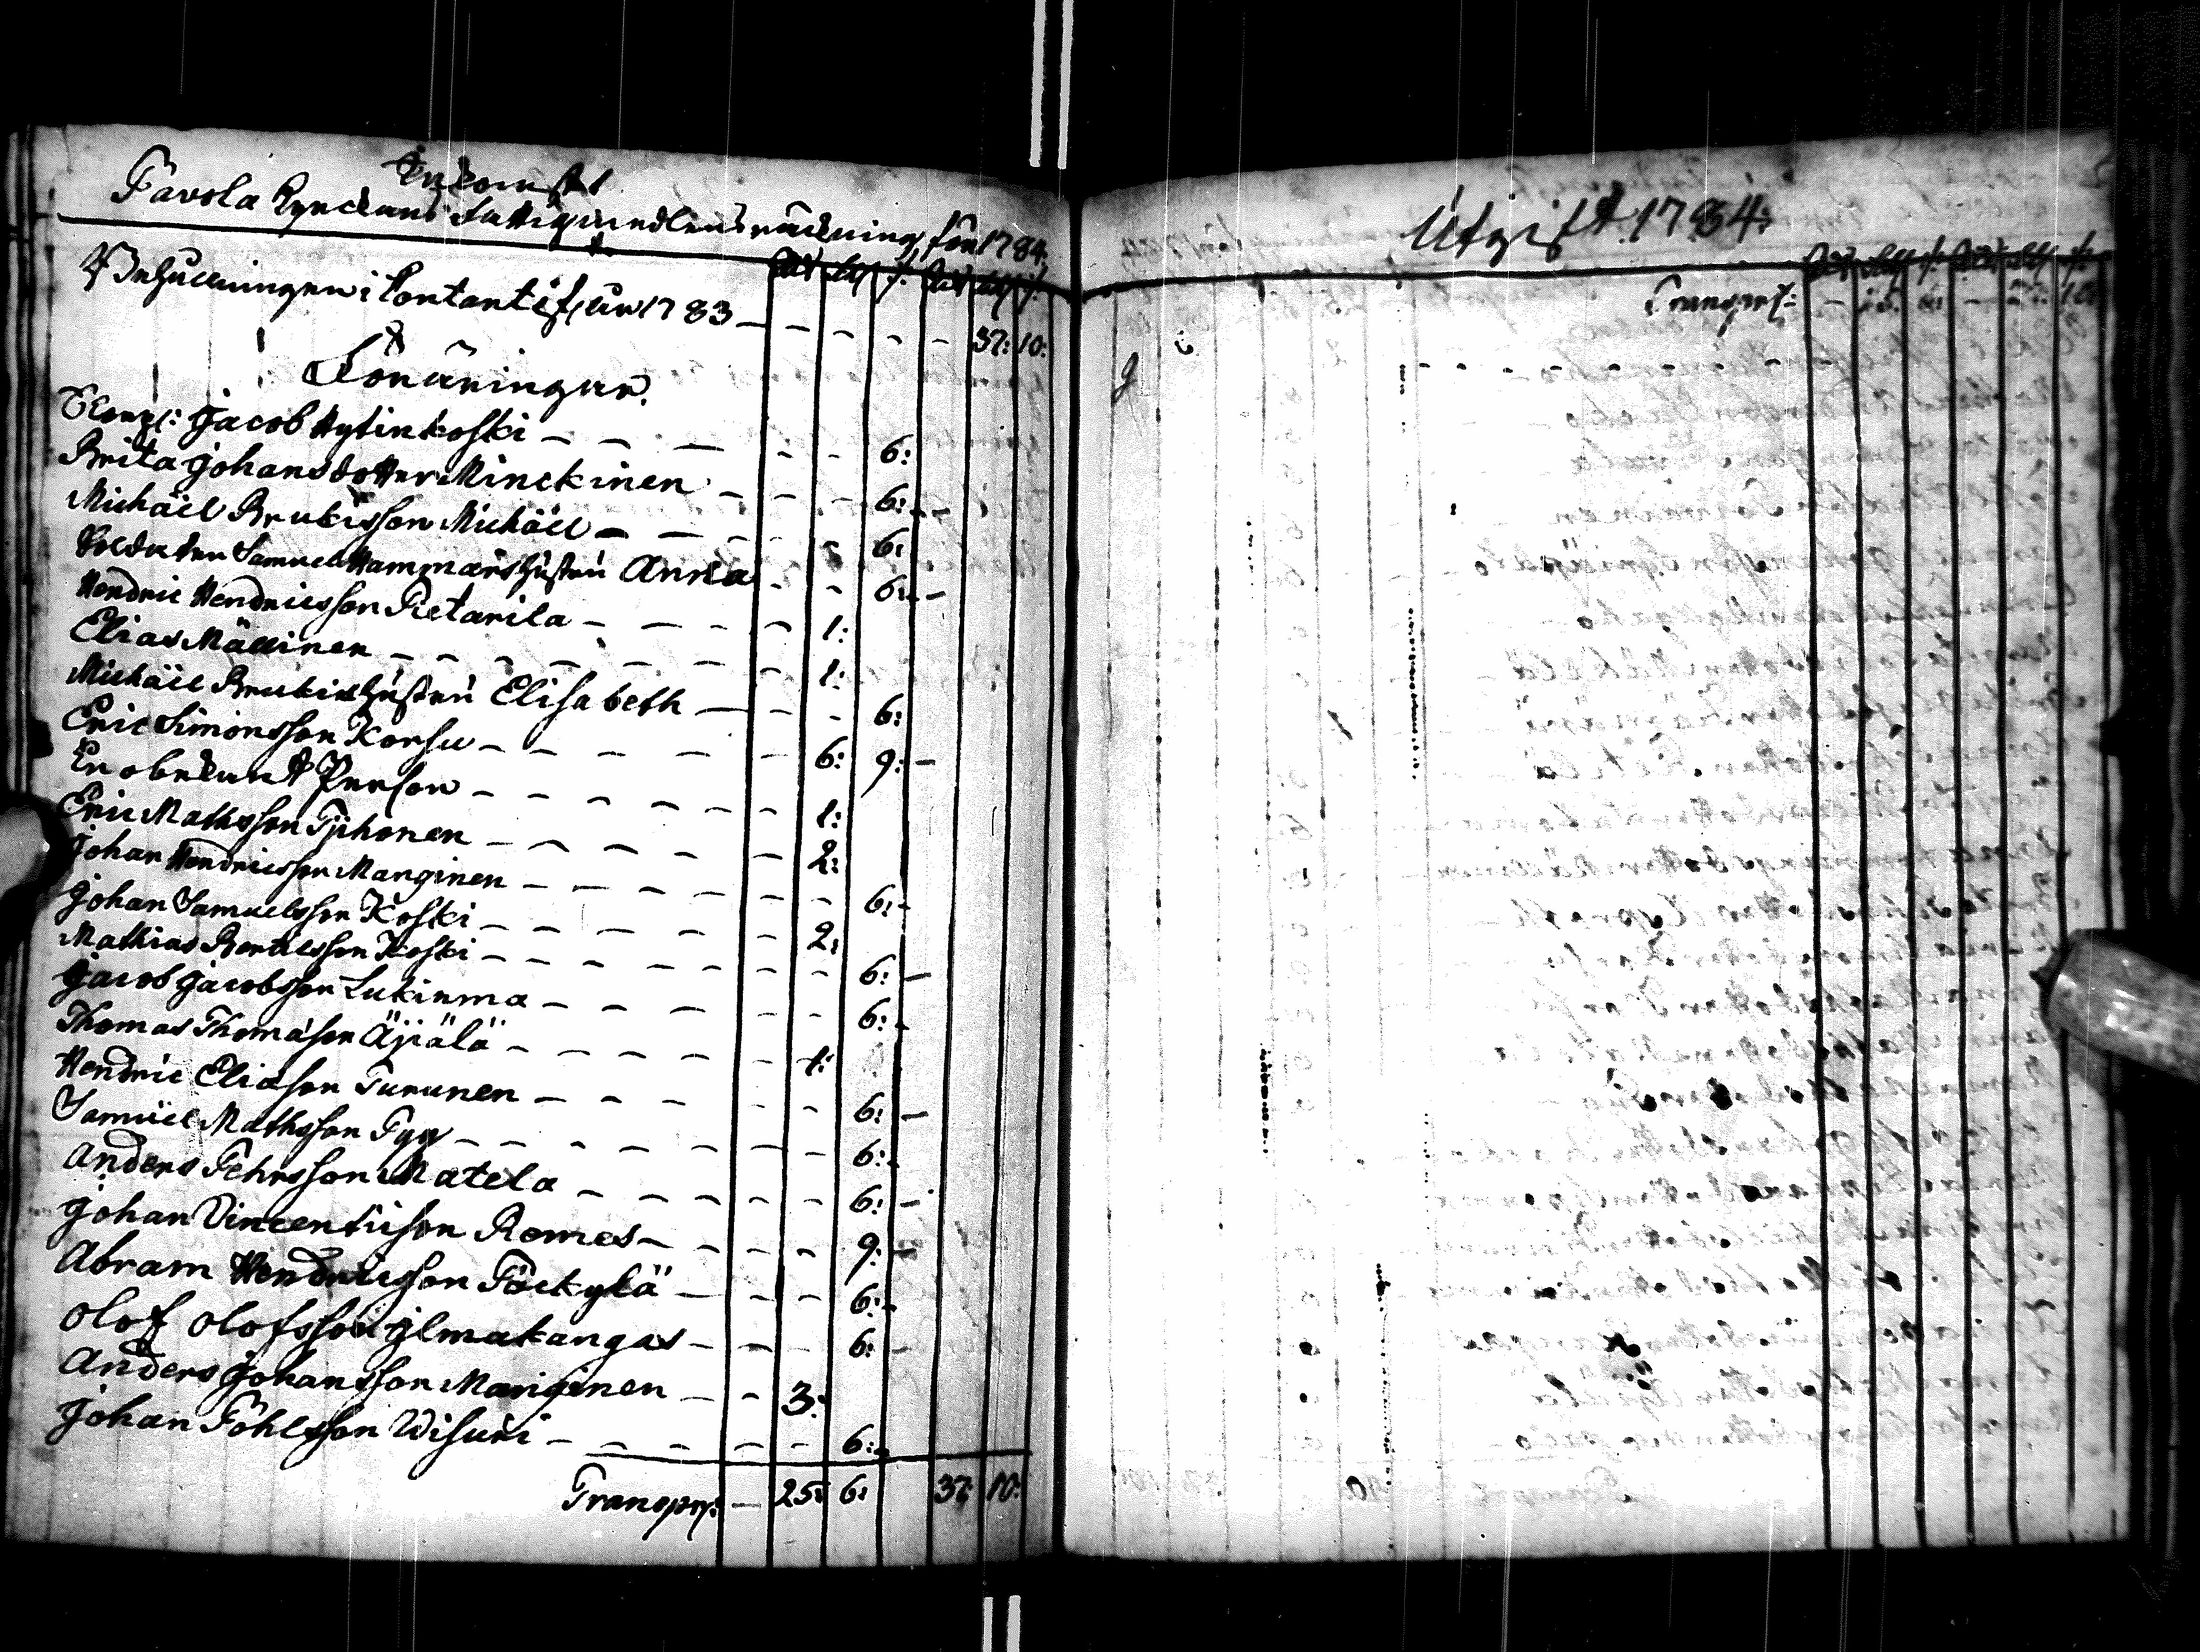 Inkomst
Pavola Kyrckans fattigmedlens räckning för 1784.
Behållningen i Contant ifrån 1783 — — — — — 37: 10:
Föräringar.
Jacob Hytinkoski — — — — — 6:
Brita Johansdotter Minckinen — — — — 6: —
Michäel Michäel — — — — — 6:
Soldaten Samuel Hammars hustru Anna — — 6: —
Hendric Hendricsson Pietarila — — — — 1:
Elias Mällinen — — — — — — 1:
Michäel hustru Elisabeth — — — 6:
Eric Simonsson Korsu — — — — — 6: 9: —
En obekant Person — — — — — — 1:
Eric Mathsson Tyhonen — — — — — 2:
Johan Hendricsson Manginen — — — — — — 6: —
Johan Samuelsson Koski — — — — — 2:
Mathias Koski — — — — — — — 6: —
Jacob Jacobsson Lukinma — — — — — — 6: —
Thomas Thomasson Äijälä — — — — — 1:
Hendric Eliasson Turunen — — — — — — 6: —
Samuel Mathsson Tyy — — — — — — — 6: —
Anders Pehrsson Matela — — — — — 6: —
Johan Vincentiison Romes — — — — — 9: —
Abram Hendricsson Päckylä — — — 6: —
Olof Olofsson Jlmakangas — — — 6: —
Anders Johansson Manginen — — 3:
Johan Pöhlsson Wisuri — — — — — 6: —
Transprt: — 25: 6: 37: 10:
Utgift 1784:
Transprt: — — 10